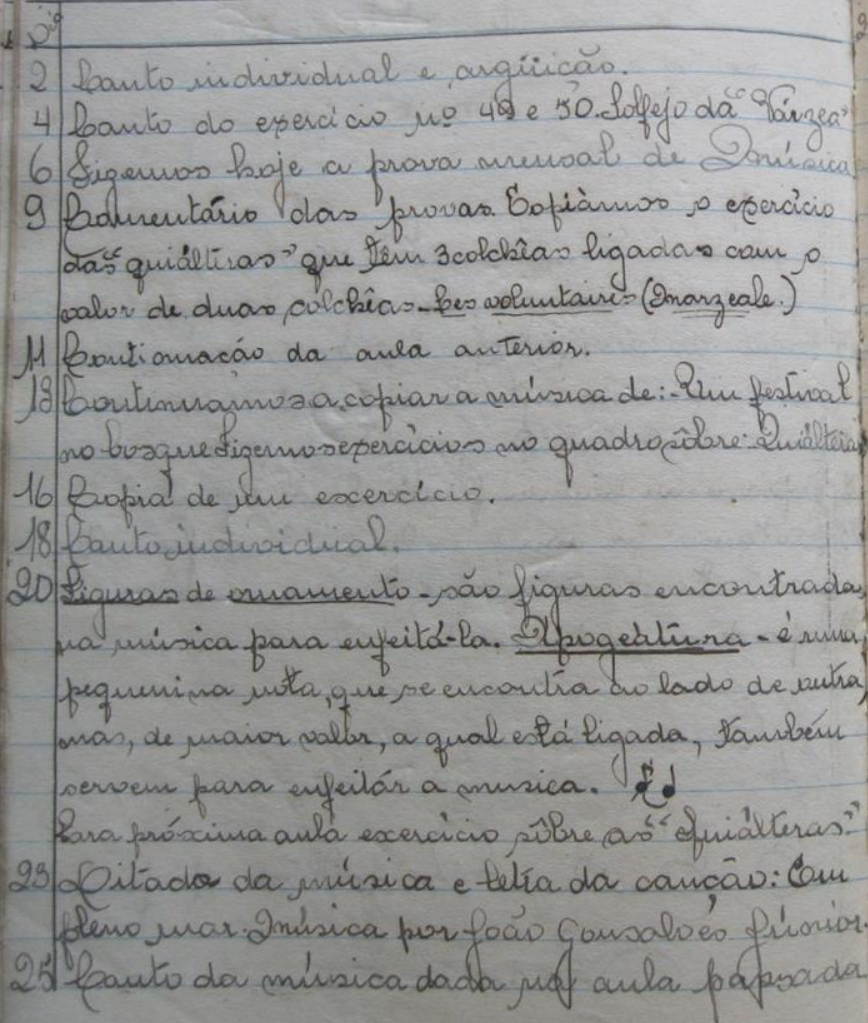 Dia
2 Canto individual e argüicão.
4 Canto do exercício nº 49 e 50. Solfejo da “Várzea”
6 Fizemos hoje a prova mensal de Música
9 Comentário das provas. Copiàmos o exercício
das “quiálteras” que têm 3 colchêas ligadas com o
valor de duas colchêas - Les voluntaires (Marzeale.)
11 Continuação da aula anterior.
13 Continuamos a copiar a música de: - Um festival
no bosque Fizemos exercícios no quadro sôbre: Quiálteras
16 Copia de um excercício.
18 Canto individual.
20 Figuras de ornamento - são figuras encontradas
na música para enfeitá-la. Apogeatura - é numa
pequenina nota, que se encontra ao lado de outra,
mas, de maior valôr, a qual está ligada, também
servem para enfeitár a musica.
Para próxima aula excercício sôbre as “Quiálteras”
23 Ditado da música e letra da canção: Em
pleno mar. Música por João Gonsalves Júnior.
25 Canto da música dada na aula passada